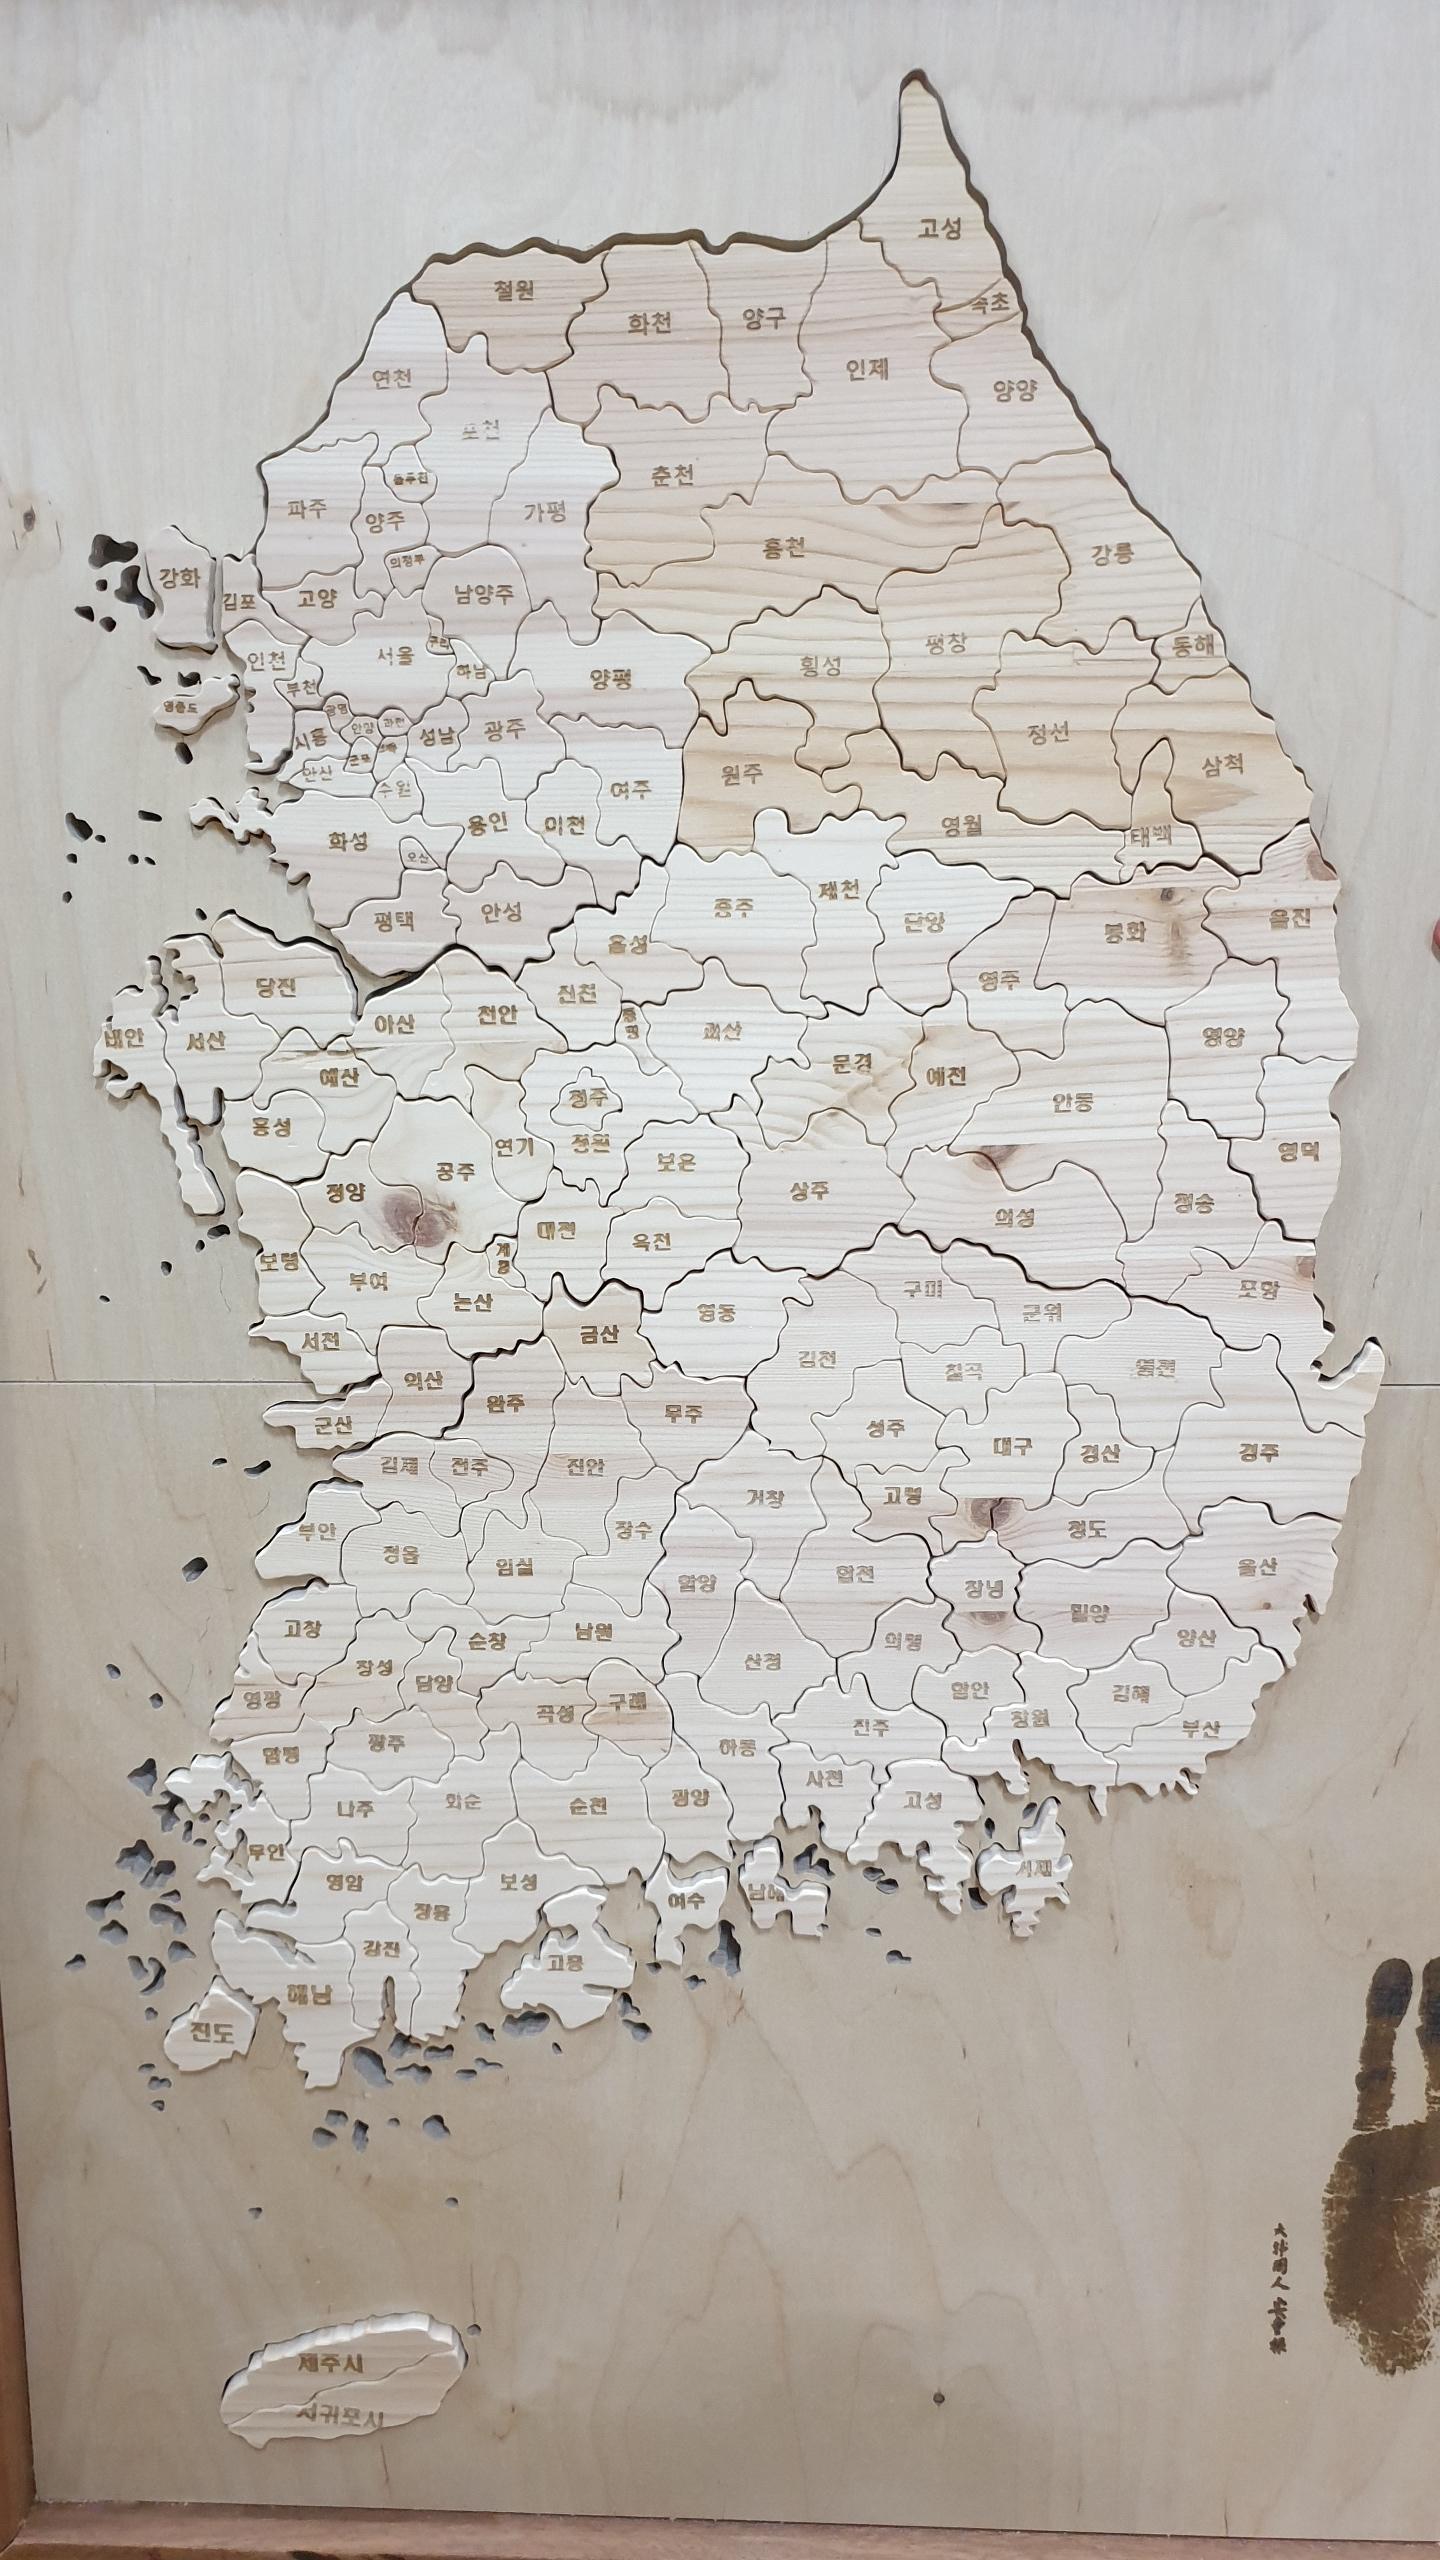 고성
철원
속초
화천
양구
인제
연천
양양
포천
춘천
동두천
파주
가평
양주
홍천
강릉
의정부
강화
남양주
김포
고양
평창
구리
동해
서울
인천
횡성
하남
양평
부천
영종도
광명
안양
과천
광주
정선
시흥
성남
군포
삼척
안산
원주
수원
여주
영월
용인
이천
태백
화성
오산
제천
충주
평택
안성
단양
울진
봉화
음성
영주
당진
진천
천안
아산
증평
괴산
태안
서산
영양
문경
예산
예천
청주
안동
홍성
연기
청원
영덕
보은
공주
청양
상주
청송
의성
대전
옥천
계룡
보령
부여
구미
포항
논산
군위
영동
금산
서천
김천
영천
칠곡
익산
완주
무주
군산
성주
대구
경산
경주
김제
전주
진안
거창
고령
부안
장수
청도
정읍
임실
합천
울산
함양
창녕
밀양
고창
순창
남원
의령
양산
장성
산청
담양
함안
김해
영광
구례
곡성
창원
진주
부산
광주
하동
함평
사천
나주
화순
순천
광양
고성
무안
거제
영암
보성
여수
남해
장흥
강진
고흥
해남
진도
大韓國人 安重根
제주시
서귀포시